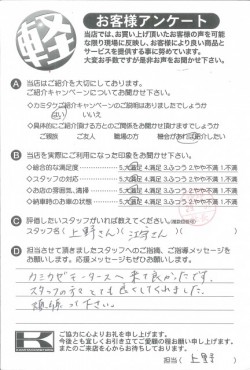 軽
お客様アンケート
当店では、お買い上げ頂いたお客様の声を可能
な限り現場に反映し、お客様により良い商品と
サービスを提供する事に努めています。
大変お手数ですが是非お声をお聞かせ下さい。
A 当店はご紹介を大切にしております。
ご紹介キャンペーンについてお聞かせ下さい。
◇カミタケご紹介キャンペーンのご説明はありましたでしょうか
はい いいえ
◇具体的にご紹介頂ける方とのご関係をお聞かせ頂けますでしょうか
ご親族 ご友人 職場の方 機会があれば紹介したい
B 当店を実際にご利用になった印象をお聞かせ下さい。
◇総合的な満足度 5.大満足 4.満足 3.ふつう 2.やや不満 1.不満
◇スタッフの対応 5.大満足 4.満足 3.ふつう 2.やや不満 1.不満
◇お店の雰囲気、清掃 5.大満足 4.満足 3.ふつう 2.やや不満 1.不満
◇納車時のお車の状態 5.大満足 4.満足 3.ふつう 2.やや不満 1.不満
C 評価したいスタッフがいれば教えてください。
スタッフ名( 上野さん )( さん )
D 担当させて頂きましたスタッフへのご指摘、ご指導メッセージを
お願いします。応援メッセージもぜひお願いします。
カミタケモータースへ来て良かったです。
スタッフの方々とても良くしてくれました。
頑張って下さい。
K
ご協力に心よりお礼を申し上げます。
今後とも宜しくお引き立てご愛顧の程お願い申し上げます。
またのご来店を心からお待ちしております。
担当( 上野 )